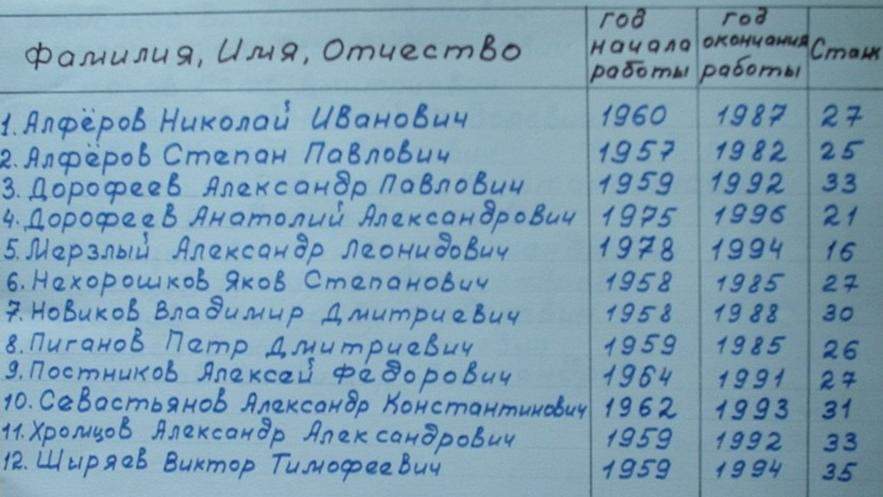 Фамилия, Имя, Отчество год начала работы год окончания работы Стаж
1. Алфёров Николай Иванович 1960 1987 27
2. Алфёров Степан Павлович 1957 1982 25
3. Дорофеев Александр Павлович 1959 1992 33
4. Дорофеев Анатолий Александрович 1975 1996 21
5. Мерзлый Александр Леонидович 1978 1994 16
6. Нехорошков Яков Степанович 1958 1985 27
7. Новиков Владимир Дмитриевич 1958 1988 30
8. Пиганов Петр Дмитриевич 1959 1985 26
9. Постников Алексей Федорович 1964 1991 27
10. Севастьянов Александр Константинович 1962 1993 31
11. Хромцов Александр Александрович 1959 1992 33
12. Шыряев Виктор Тимофеевич 1959 1994 35